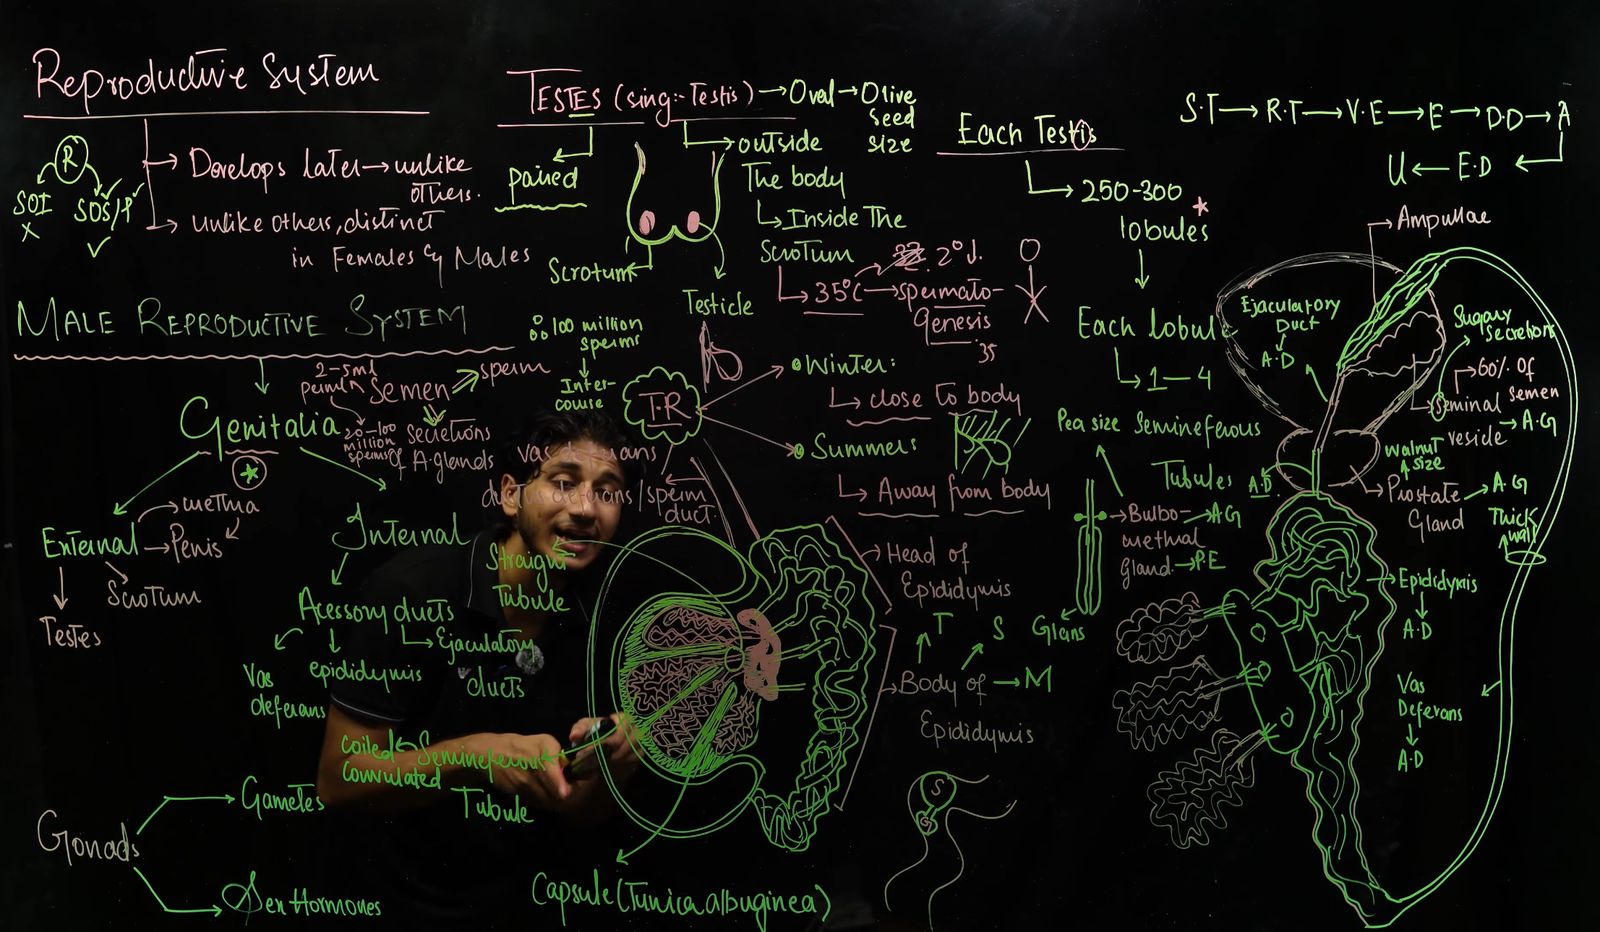 Reproductive System
R
SOI
X
SOS/P
✓
→ Develops later → unlike
others.
→ unlike others, distinct
in Females & Males
MALE REPRODUCTIVE SYSTEM
Genitalia
*
External
→ Penis
urethra
Scrotum
Testes
Internal
Acessory ducts
Ejaculatory
ducts
epididymis
Vas
deferans
Gonads
Gametes
Sex Hormones
2-5ml
Semen
sperm
20-100
million
sperms
secretions
of A.glands
100 million
sperms
Inter-
couise
TESTES (sing:- Testis) → Oval → Olive
seed
size
paired
outside
The body
Inside The
Scrotum
Scrotum
Testicle
35°C → spermato-
genesis
2° ↓.
35
T.R
Winter:
close to body
Summer:
Away from body
vas deferans
ductus deferans/sperm
duct.
Straight
Tubule
coiled
Semineferous
convulated
Tubule
Capsule (Tunica albuginea)
Head of
Epididymis
T
S
Body of → M
Epididymis
S
G
Each Testis
250-300
lobules
*
Each lobule
1-4
Semineferous
Tubules
Pea size
Bulbo- → AG
urethral
gland → P.E
Glans
S.T → R.T → V.E → E → D.D → A
U ← E.D ←
Ampullae
Ejaculatory
Duct
A.D
Sugary
Secretions
60% of
Semen
Seminal
veside → A.G
walnut
size
Prostate → A.G
Gland
Thick
wall
A.D
Epididymis
A.D
Vas
Deferans
A.D